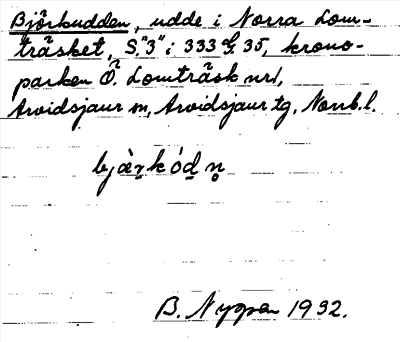 Björkudden, udde i Norra Lom-
träsket, S. "3" i 333 35, krono-
parken Ö. Lomträsk nr 1,
Arvidsjaur sn, Arvidsjaur tg. Norrb. l.
B. Nygren 1932.